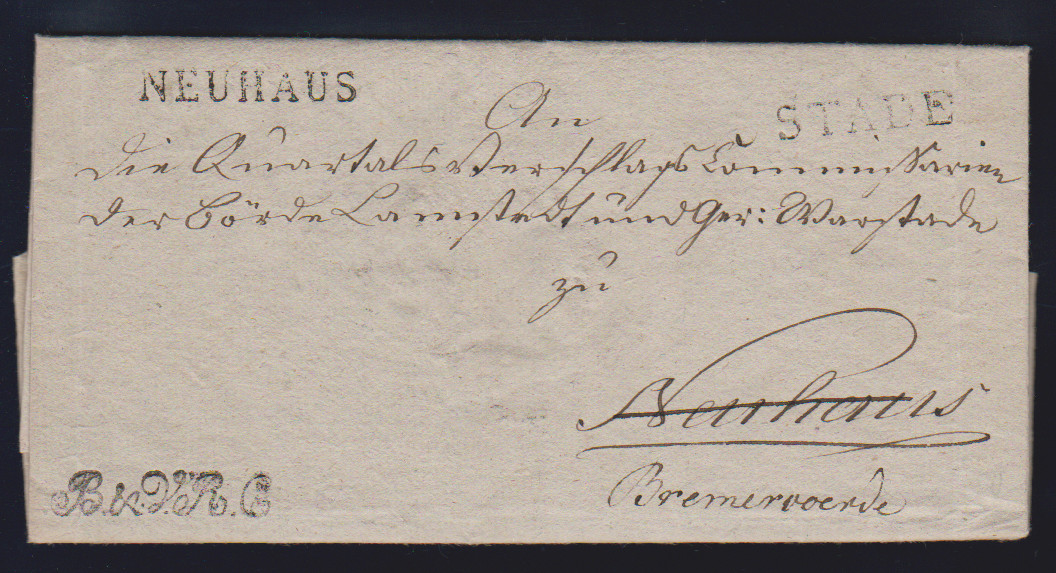 NEUHAUS
STADE
An
die Quartals Verschlags Commissarien
der Börde Lamstedt und Ger: Warstade
zu
Neuhaus
Bremervoerde
B. & V. R. C